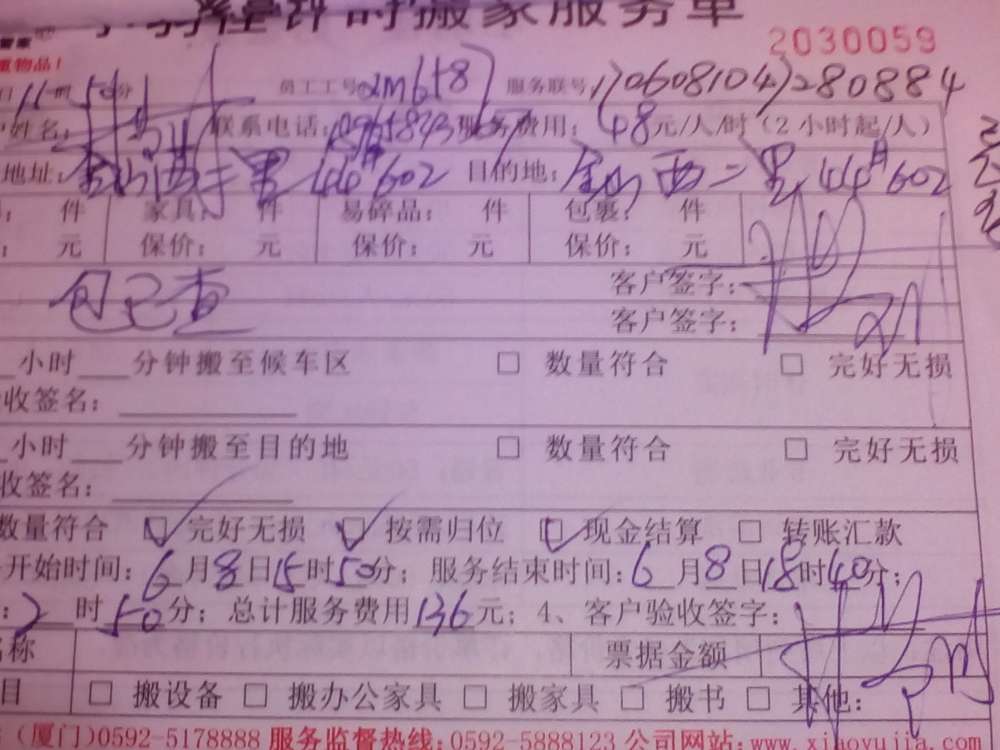 计时搬家服务单
2030059
重物品！
11时50分 员工工号 服务联号
姓名： 联系电话： 服务费用：48元/人/时（2小时起/人）
地址： 44#602 目的地：金山西二里44#602
件 家具： 件 易碎品： 件 包裹： 件
元 保价： 元 保价： 元 保价： 元
包已查 客户签字：
客户签字：
小时 分钟搬至候车区 □ 数量符合 □ 完好无损
收签名：
小时 分钟搬至目的地 □ 数量符合 □ 完好无损
收签名：
数量符合 ☑ 完好无损 ☑ 按需归位 ☑ 现金结算 □ 转账汇款
开始时间：6月8日15时50分；服务结束时间：6月8日18时40分；
2时50分；总计服务费用136元；4、客户验收签字：
名称 票据金额
目 □ 搬设备 □ 搬办公家具 □ 搬家具 □ 搬书 □ 其他：
（厦门）0592-5178888 服务监督热线：0592-5888123 公司网站：www.xiaoyujia.com